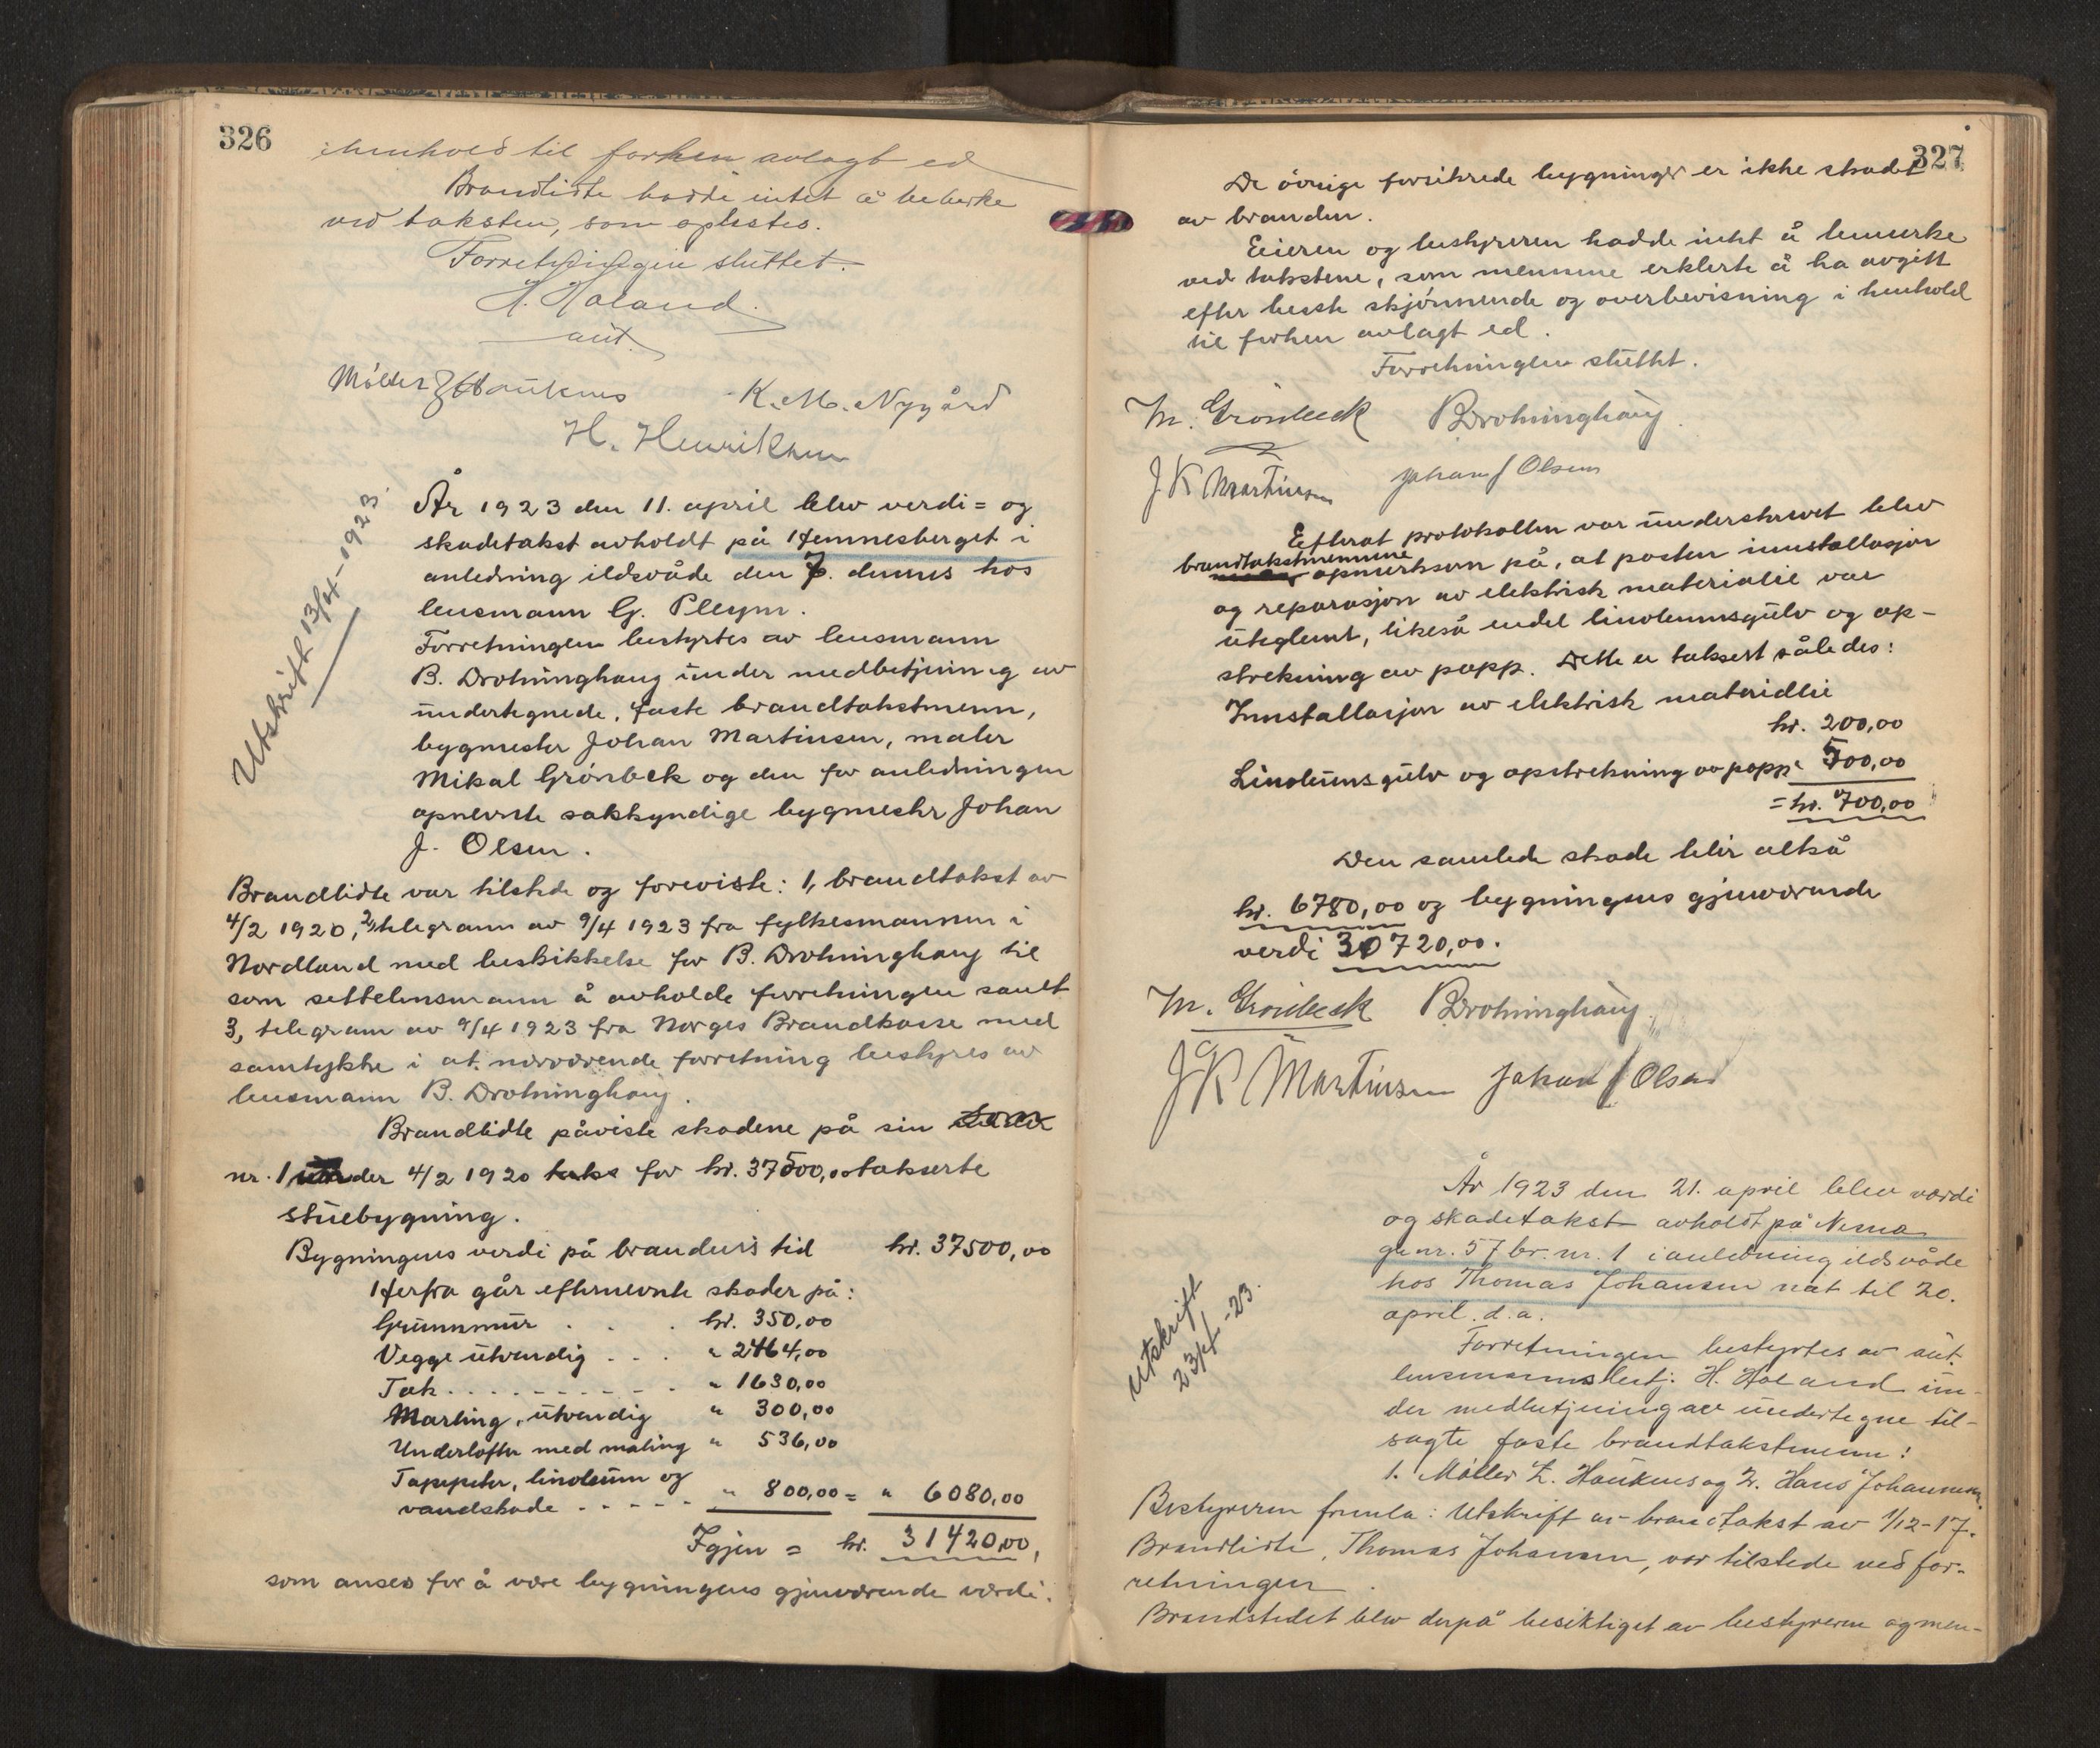 326
i henhold til forhen avlagt ed
Brandlidte hadde intet å bemerke
ved taksten, som oplestes.
Forretningen sluttet.
H. Høland.
aut.
Møller Z Hauknes K. M. Nygård
H. Henriksen
Utskrift 13/4-1923.
År 1923 den 11. april blev verdi= og
skadetakst avholdt på Hemnesberget i
anledning ildsvåde den 7. dennes hos
lensmann G. Pleym.
Forretningen bestyrtes av lensmann
B. Drotninghaug under medbetjening av
undertegnede, faste brandtakstmenn,
bygmester Johan Martinsen, maler
Mikal Grönbeck og den for anledningen
opnevnte sakkyndige bygmester Johan
J. Olsen.
Brandlidte var tilstede og foreviste: 1, brandtakst av
4/2 1920, 2, telegram av 9/4 1923 fra fylkesmannen i
Nordland med beskikkelse for B. Drotninghaug til
som settelensmann å avholde forretningen samt
3, telegram av 9/4 1923 fra Norges Brandkasse med
samtykke i at nærværende forretning bestyres av
lensmann B. Drotninghaug.
Brandlidte påviste skadene på sin
nr. 1 under 4/2 1920 taks for kr. 37500,00 takserte
stuebygning.
Bygningens verdi på brandens tid kr. 37500,00
Herfra går efternevnte skader på:
Grunnmur . . . kr. 350,00
Vegge utvendig . . . " 2464,00
Tak . . . . . . . . . " 1630,00
Marling, utvendig " 300,00
Underlofter med maling " 536,00
Tapepeter, linoleum og
vandskade . . . . . " 800,00 = " 6080,00
Igjen = kr. 31420,00,
som ansees for å være bygningens gjenværende verdi.
327
De øvrige forsikrede bygninger er ikke skadet
av branden.
Eieren og bestyreren hadde intet å bemerke
ved takstene, som mennene erklerte å ha avgitt
efter beste skjønnende og overbevisning i henhold
til forhen avlagt ed.
Forretningen sluttet.
M. Grönbeck B Drotninghaug
J K Martinsen Johan J Olsen
Efterat protokollen var underskrevet blev
brandtakstmennene
opmerksom på, at posten innstallasjon
og reparasjon av elektrisk materialie var
uteglemt, likeså endel linoleumsgulv og op-
strekning av papp. Dette er taksert således:
Innstallasjon av elektrisk materidlie
kr. 200,00
Linoleumsgulv og opstrekning av papp " 500,00
= kr. 700,00
Den samlede skade blir altså
kr. 6780,00 og bygningens gjenværende
verdi 30720,00.
M. Grönbeck B Drotninghaug
J K Martinsen Johan J Olsen
Utskrift
23/4-23.
År 1923 den 21. april blev værdi
og skadetakst avholdt på Nesna
gr.nr. 57 br. nr. 1 i anledning ildsvåde
hos Thomas Johansen nat til 20.
april d.a.
Forretningen bestyrtes av aut.
lensmannsbetj. H. Høland un-
der medbetjening av undertegne til-
sagte faste brandtakstmenn:
1. Møller Z. Hauknes og 2. Hans Johannesen.
Bestyreren fremla: Utskrift av brandtakst av 1/12-17.
Brandlidte, Thomas Johansen, var tilstede ved for-
retningen.
Brandstedet blev derpå besiktiget av bestyreren og men-